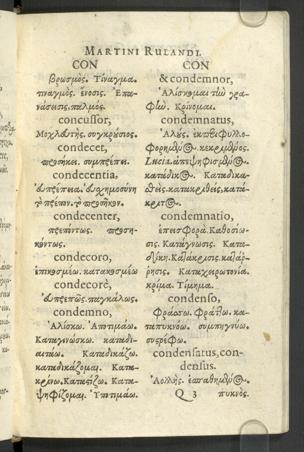 MARTINI RULANDI.
CON
βρωσμὸς. Τίναγμα.
τιναγμὸς. ἔνοσις. Ἐπα-
νάσεισις. παλμὸς.
concussor,
Μοχλευτὴς. συγκρύσιος.
condecet,
προσήκει. συμπρέπει.
condecentia,
ἐυπρέπεια. ἐυσχημοσύνη
τὸ πρέπον. τὸ προσῆκον.
condecenter,
πρεπόντως. προση-
κόντως.
condecoro,
ἐπικοσμέω. κατακοσμέω
condecorè,
Ἐυπρεπῶς. παγκάλως.
condemno,
Ἁλίσκω. Ἀποτιμάω.
Καταγινώσκω. καταδι-
αιτάω. Καταδικάζω.
καταδικάζομαι. Κατα-
κρίνω. Καταιτίζω. Κατα-
ψηφίζομαι. Ὑπετιμάω.
CON
& condemnor,
Ἁλίσκομαι τὴν γρα-
φὴν. Κρίνομαι.
condemnatus,
Ἁλοὺς.
κεκριμένος.
Lucia.
κατάδικος. Καταδικα-
σθεὶς. κατακριθεὶς. κατά-
κριτος.
condemnatio,
ἐπεισφορὰ. Καθοσίω-
σις. Κατάγνωσις. Κατα-
δίκη. Κατάκρισις.
ρησις. Καταχειροτονία.
κρίμα. Τίμημα.
condenso,
Φράσσω. Φράττω. κα-
ταπυκνόω. συμπηγνύω.
συστρέφω.
condensatus, con-
densus.
Ἀολλὴς.
Q 3 πυκνὸς.